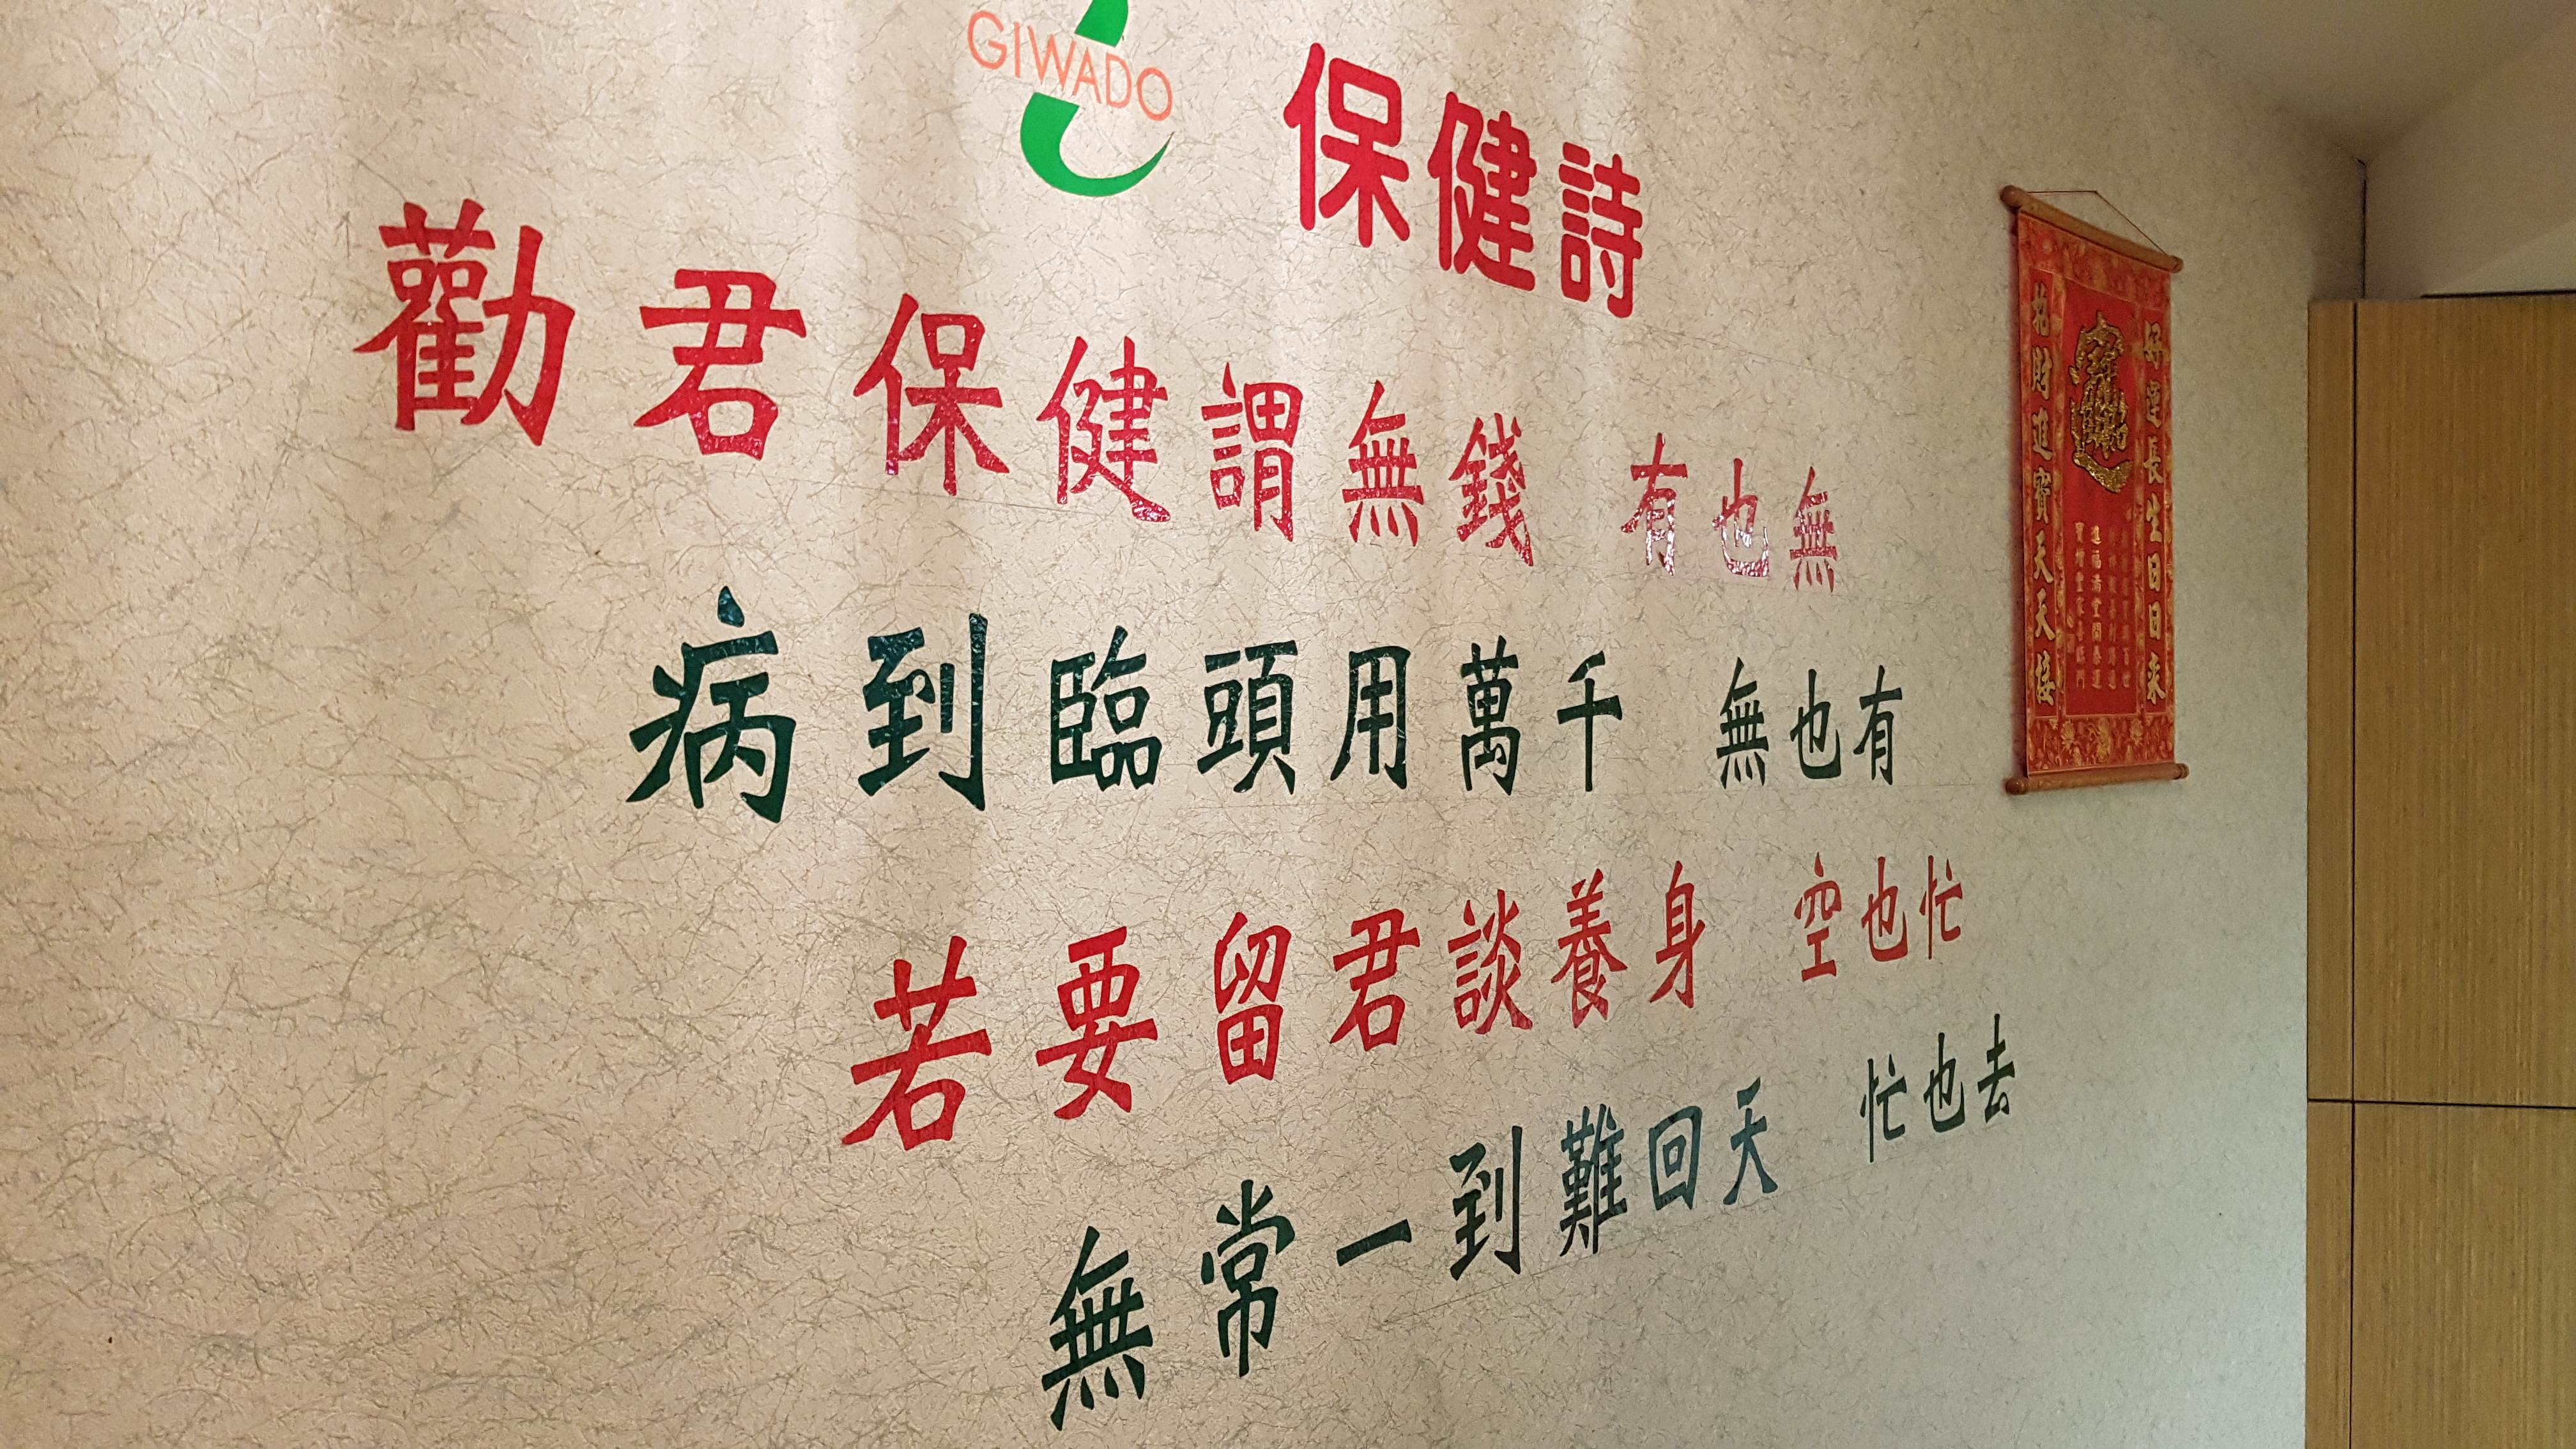 GIWADO
保健詩
勸君保健謂無錢 有也無
病到臨頭用萬千 無也有
若要留君談養身 空也忙
無常一到難回天 忙也去
好運長生日日來
招財進寶天天接